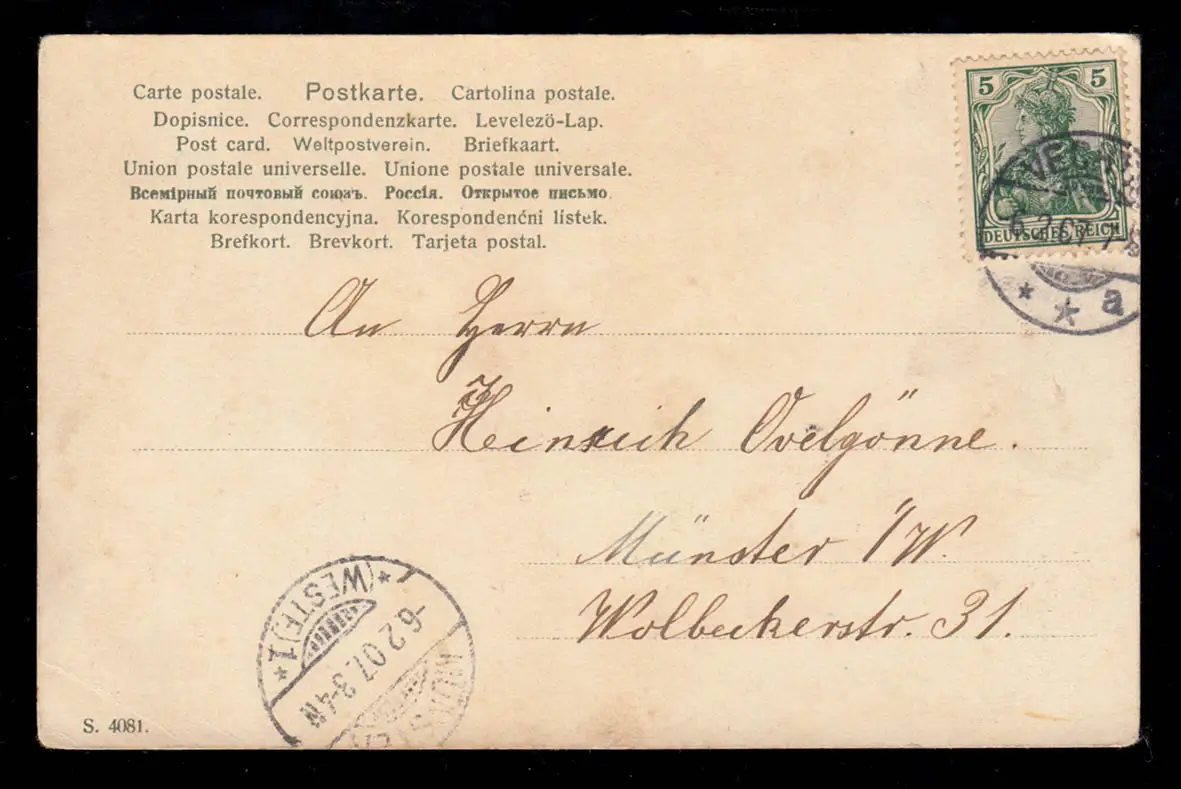 Carte postale. Postkarte. Cartolina postale.
Dopisnice. Correspondenzkarte. Levelező-Lap.
Post card. Weltpostverein. Briefkaart.
Union postale universelle. Unione postale universale.
Всемірный почтовый союзъ. Россія. Открытое письмо.
Karta korespondencyjna. Korespondenćni lístek.
Brefkort. Brevkort. Tarjeta postal.
5 5
DEUTSCHES REICH
* * a
An Herrn
Heinrich Ovelgönne.
Münster i/W.
Wolbeckerstr. 31.
(WESTF.) 1 *
-6.2.07. 3-4N
S. 4081.